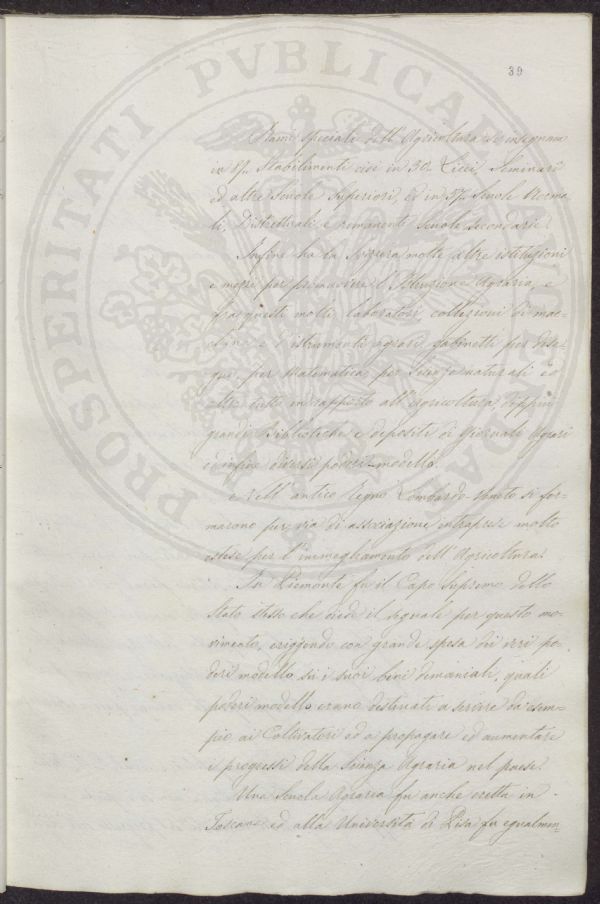 PROSPERITATI PVBLICAE AVGENDAE
39
Rami speciali dell'Agricoltura si insegnano
in 87. Stabilimenti cioè in 30. Licei, Seminarî
ed altre Scuole Superiori, ed in 57. Scuole Norma
li, Distrettuali, e rimanenti Scuole secondarie.
Infine ha la Svizzera molte altre istituzioni
e mezzi per promuovere l'Istruzione Agraria, e
fra questi molti laboratori collezioni di mac-
chine e d'istrumenti agrari gabinetti per dise-
gno, per Matematica, per Scienze naturali ed
altro tutto in rapporto all'agricoltura,
grandi Biblioteche e depositi di Giornali Agrari
ed infine diversi poderi-modello.
Nell'antico Regno Lombardo-Veneto si for-
marono per via di associazione intraprese molto
estese per l'immegliamento dell'Agricoltura.
In Piemonte fu il Capo Supremo dello
Stato stesso che diede il segnale per questo mo-
vimento, erigendo con grande spesa dei veri po-
deri modello su i suoi beni demaniali, quali
poderi modello erano destinati a servire da esem-
pio ai Coltivatori ed a propagare ed aumentare
i progressi della Scienza Agraria nel paese.
Una Scuola Agraria fu anche eretta in
Toscana ed alla Università di Pisa fu egualmen-